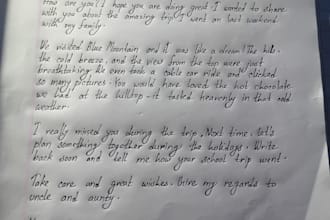 How are you? I hope you are doing great. I wanted to share
with you about the amazing trip I went on last weekend
with my family.
We visited Blue Mountain and it was like a dream! The hills,
the cold breeze, and the view from the top were just
breathtaking. We even took a cable car ride and clicked
so many pictures. You would have loved the hot chocolate
we had at the hilltop - it tasted heavenly in that cold
weather.
I really missed you during the trip. Next time, let's
plan something together during the holidays. Write
back soon and tell me how your school trip went.
Take care and great wishes. Give my regards to
uncle and aunty.